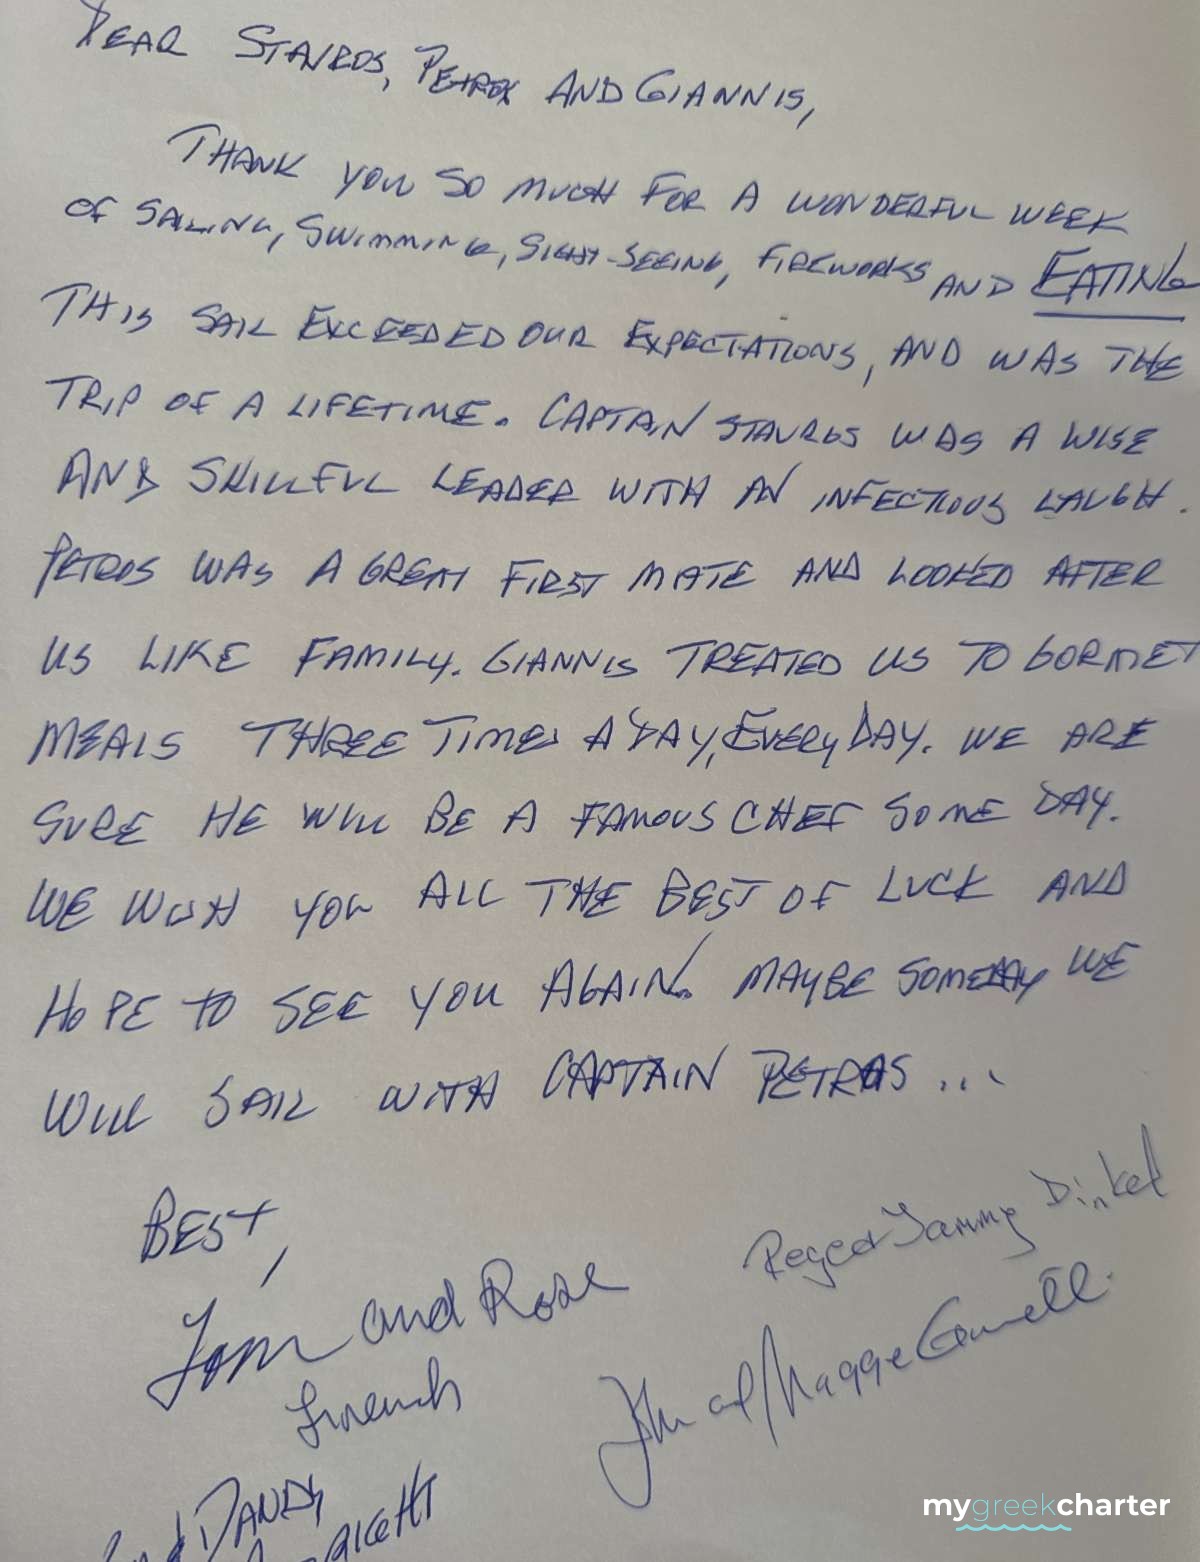 DEAR STAVROS, PETROS AND GIANNIS,
THANK YOU SO MUCH FOR A WONDERFUL WEEK
OF SAILING, SWIMMING, SIGHT-SEEING, FIREWORKS AND EATING
THIS SAIL EXCEEDED OUR EXPECTATIONS, AND WAS THE
TRIP OF A LIFETIME. CAPTAIN STAVROS WAS A WISE
AND SKILLFUL LEADER WITH AN INFECTIOUS LAUGH.
PETROS WAS A GREAT FIRST MATE AND LOOKED AFTER
US LIKE FAMILY. GIANNIS TREATED US TO GORMET
MEALS THREE TIMES A DAY, EVERY DAY. WE ARE
SURE HE WILL BE A FAMOUS CHEF SOME DAY.
WE WISH YOU ALL THE BEST OF LUCK AND
HOPE TO SEE YOU AGAIN. MAYBE SOMEDAY WE
WILL SAIL WITH CAPTAIN PETRAS ...
BEST,
Tom and Rose
Roger Tammy Dinkel
John and Maggie
DANDY
mygreekcharter